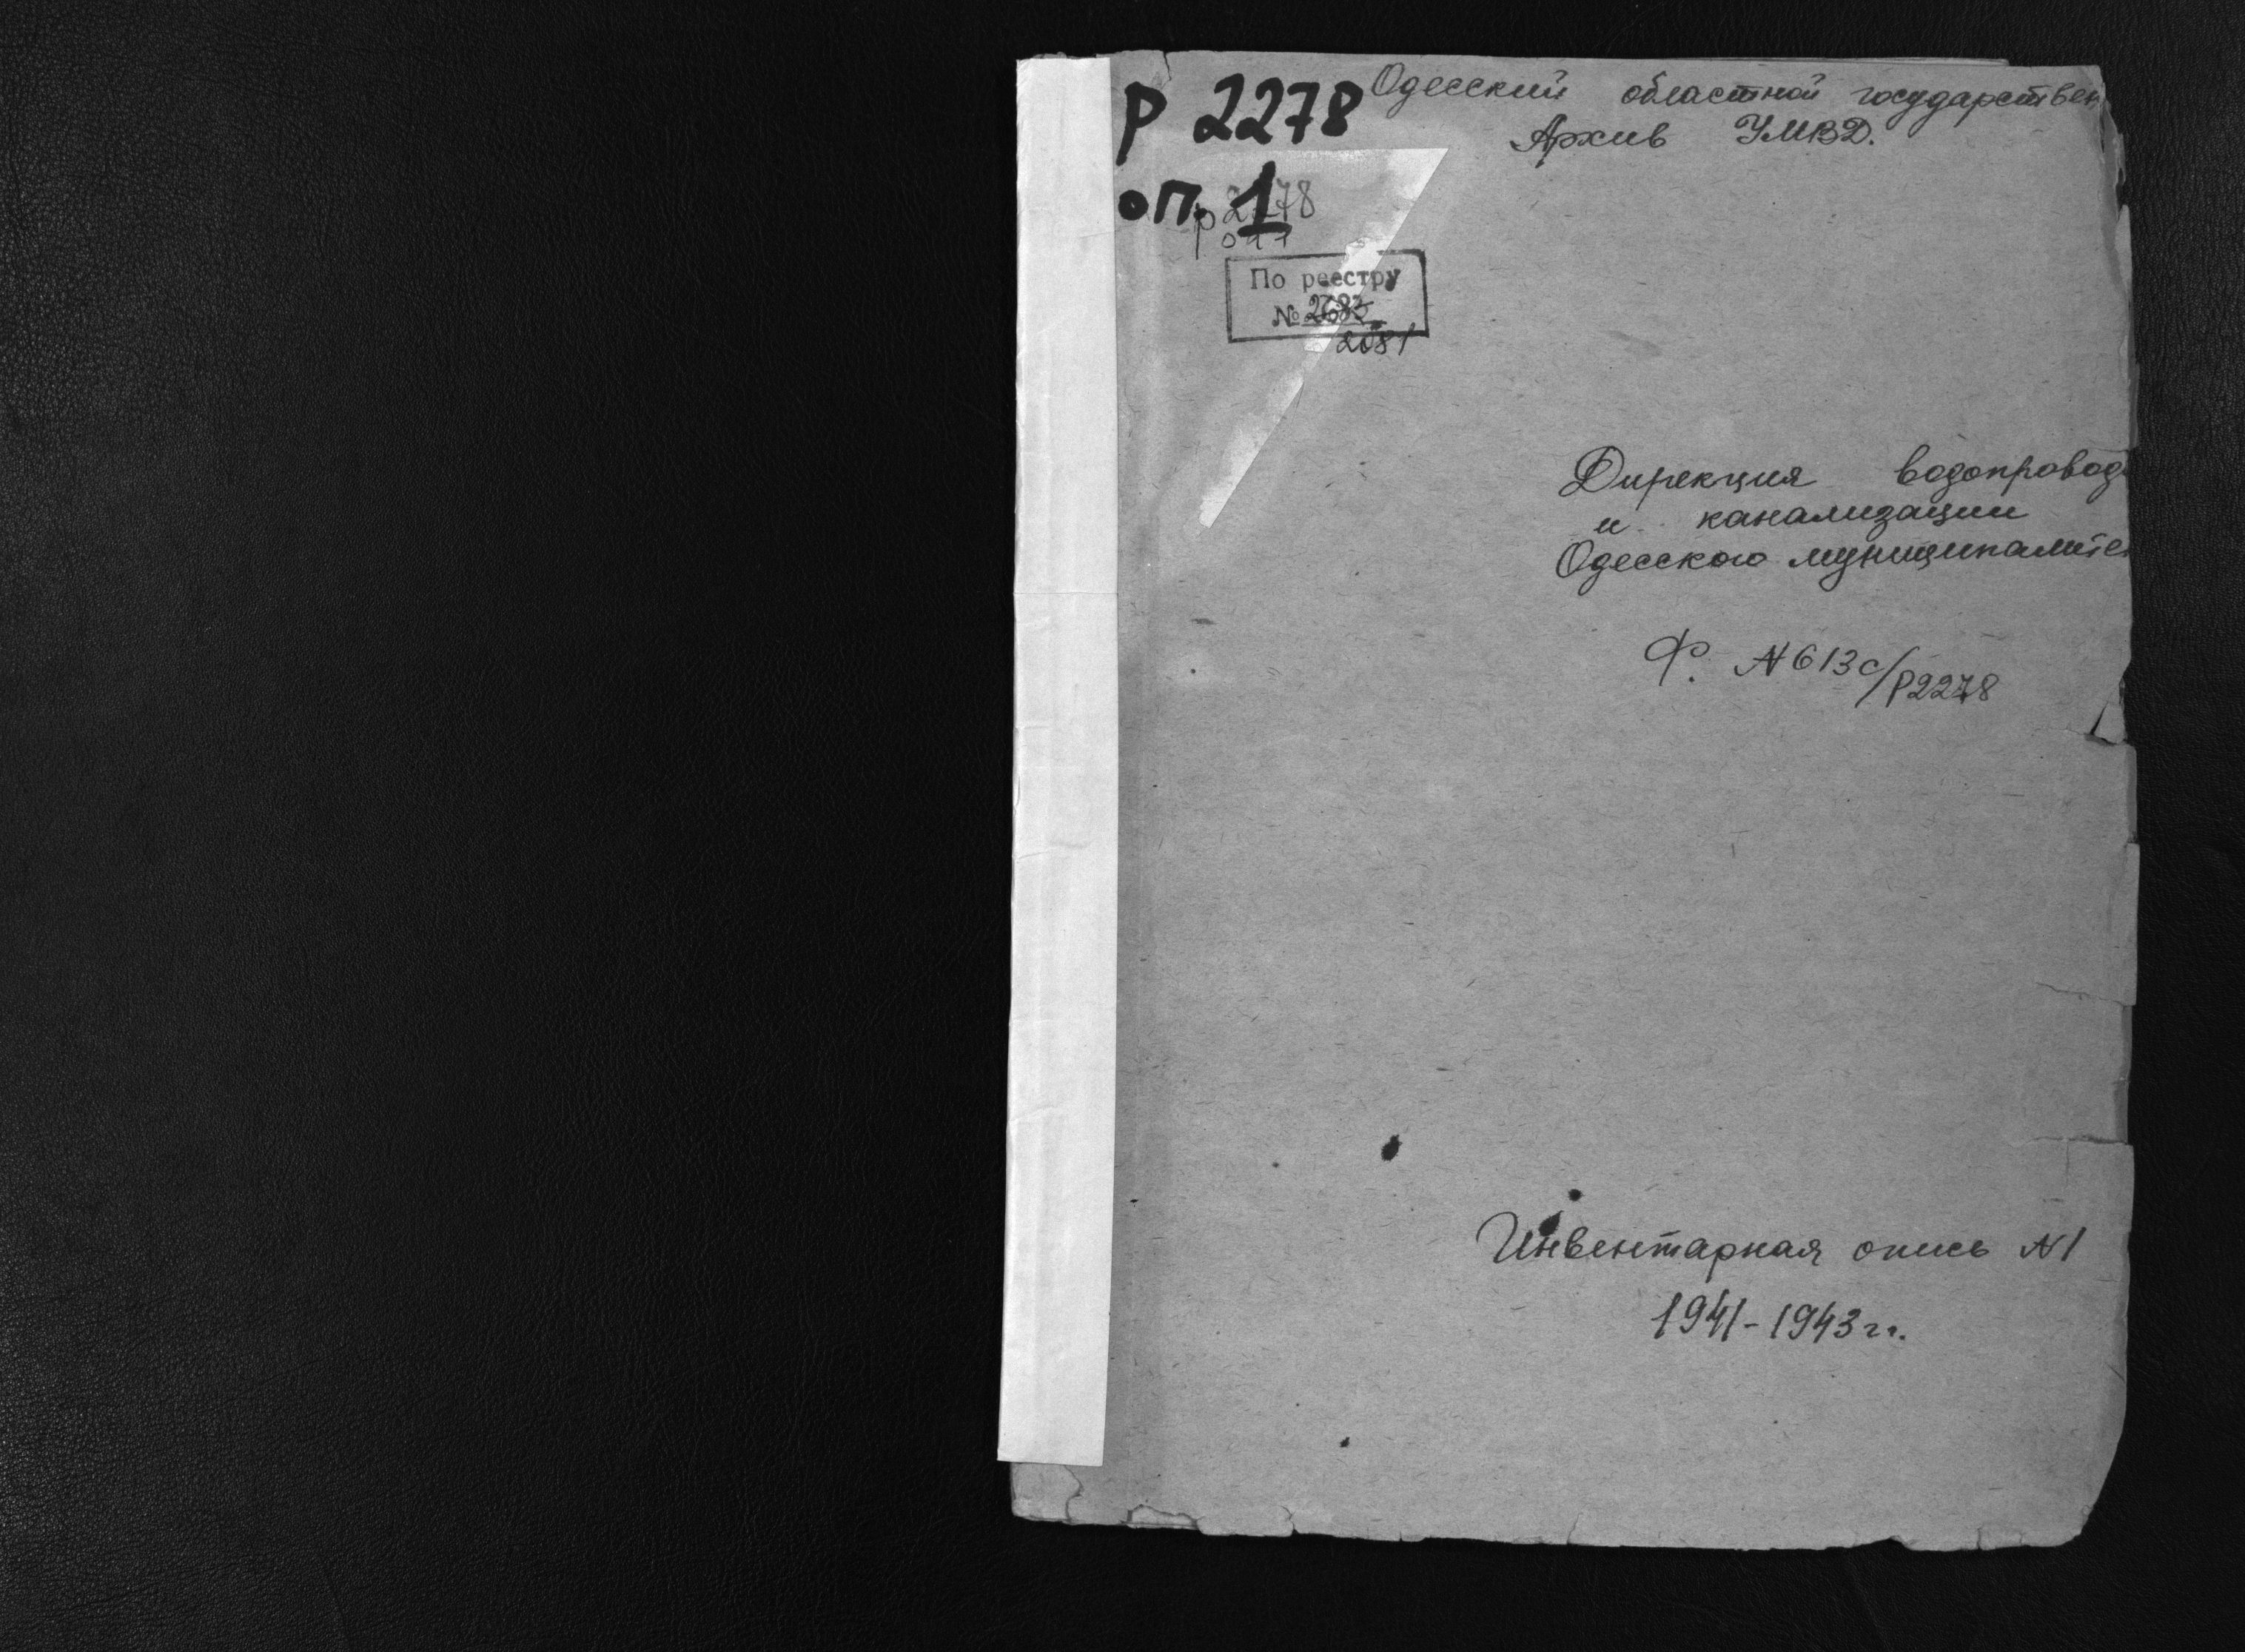 Р 2278
оп. 1
р 2278
оп 1
Одесский областной государствен
Архив УМВД.
По реестру
№
2081
Дирекция водопровод
и канализации
Одесского муниципалите
Ф. N 613с/Р2278
Инвентарная опись N1
1941-1943 гг.